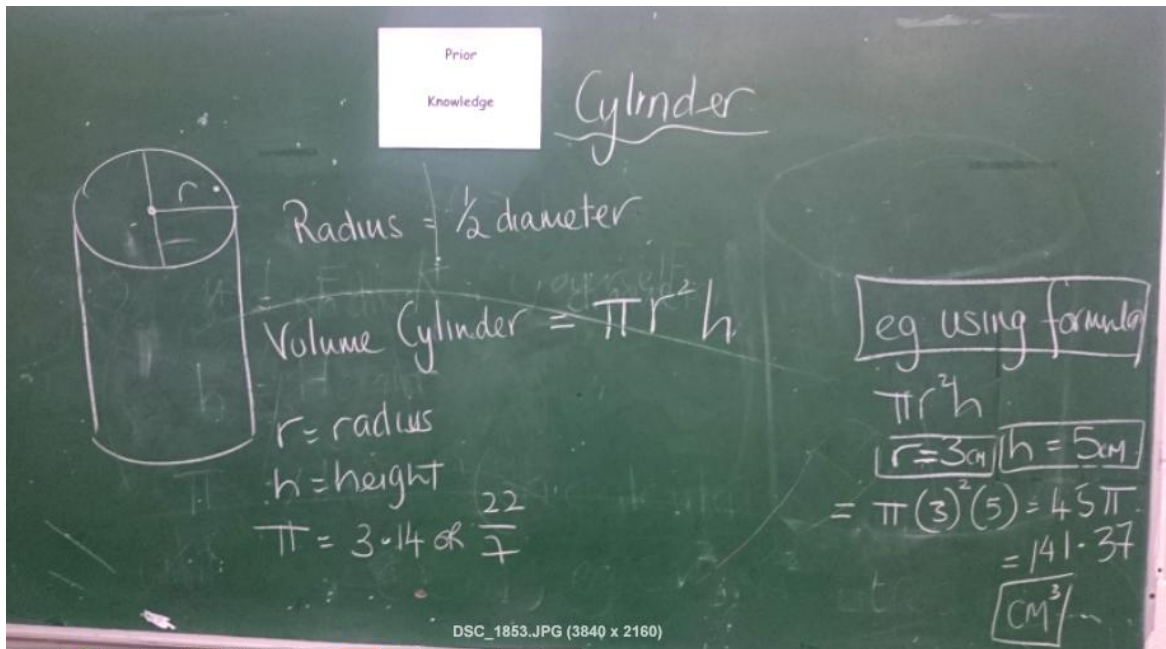 Prior
Knowledge
Cylinder
r
Radius = 1/2 diameter
Volume Cylinder = πr²h
r = radius
h = height
π = 3.14 or 22/7
eg using formula
πr²h
r=3cm h = 5cm
= π(3)²(5) = 45π
= 141.37
CM³
DSC_1853.JPG (3840 x 2160)